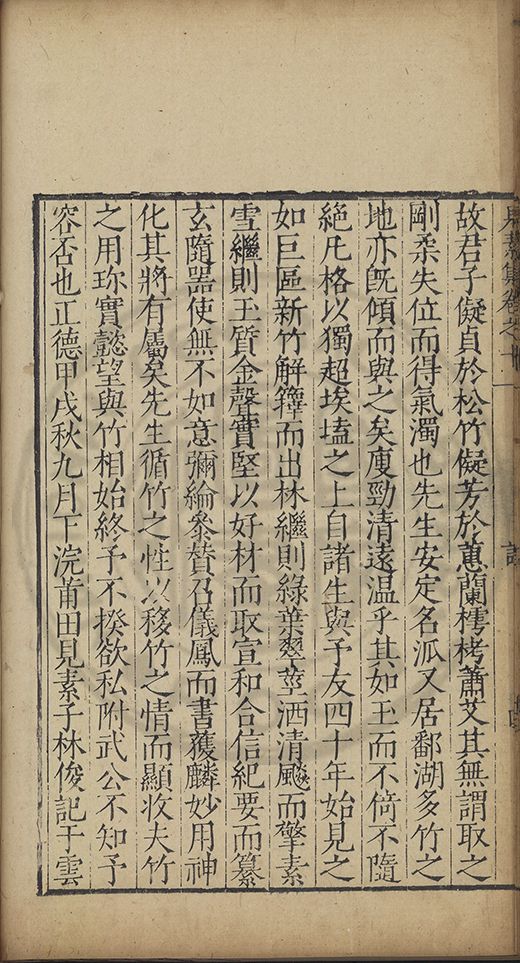 故君子儗貞於松竹儗芳於蕙蘭樗栲蕭艾其無謂取之
剛柔失位而得氣濁也先生安定名派又居鄱湖多竹之
地亦旣傾而與之矣廋勁清遠温乎其如玉而不倚不隨
絶凡格以獨超埃壒之上自諸生與予友四十年始見之
如巨區新竹解籜而出林繼則綠葉翠莖洒清飈而擎素
雪繼則玉質金聲實堅以好材而取宣和合信紀要而纂
玄隨器使無不如意彌綸叅賛召儀鳳而書獲麟妙用神
化其將有屬矣先生循竹之性以移竹之情而顯收夫竹
之用珎實懿望與竹相始終予不揆欲私附武公不知予
容否也正德甲戌秋九月下浣莆田見素子林俊記于雲